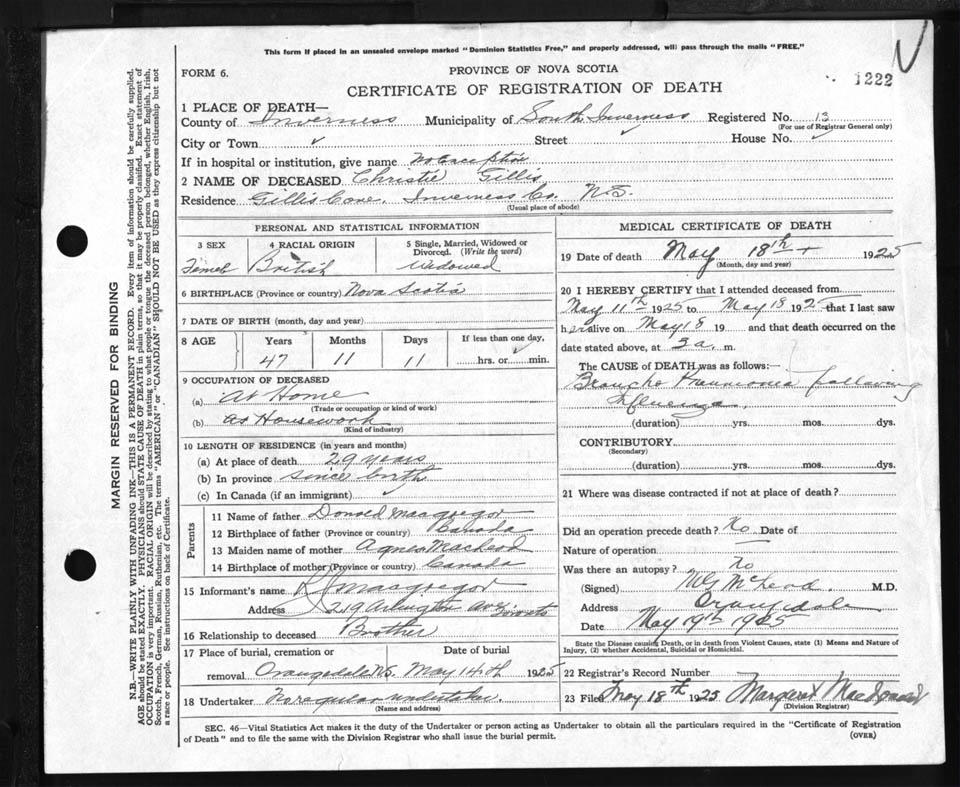 This form if placed in an unsealed envelope marked "Dominion Statistics Free," and properly addressed, will pass through the mails "FREE."
FORM 6.
PROVINCE OF NOVA SCOTIA
1222
CERTIFICATE OF REGISTRATION OF DEATH
1 PLACE OF DEATH—
County of Inverness Municipality of South Inverness Registered No. 13
(For use of Registrar General only)
City or Town Street House No.
If in hospital or institution, give name
2 NAME OF DECEASED Christie Gillis
Residence Gillis Cove, Inverness Co. N.S.
(Usual place of abode)
PERSONAL AND STATISTICAL INFORMATION
3 SEX 4 RACIAL ORIGIN 5 Single, Married, Widowed or Divorced. (Write the word)
Femal British Widowed
6 BIRTHPLACE (Province or country) Nova Scotia
7 DATE OF BIRTH (month, day and year)
8 AGE Years Months Days If less than one day,
47 11 11 hrs. or min.
9 OCCUPATION OF DECEASED
(a) at Home
(Trade or occupation or kind of work)
(b) as Housework
(Kind of industry)
10 LENGTH OF RESIDENCE (in years and months)
(a) At place of death 29 years
(b) In province since birth
(c) In Canada (if an immigrant)
Parents
11 Name of father Donald Macgregor
12 Birthplace of father (Province or country) Canada
13 Maiden name of mother Agnes MacLeod
14 Birthplace of mother (Province or country) Canada
15 Informant's name Macgregor
Address 219 Arlington Ave Toronto
16 Relationship to deceased Brother
17 Place of burial, cremation or removal Date of burial
Orangedale N.S. May 14th 1925
18 Undertaker No regular undertaker.
(Name and address)
MEDICAL CERTIFICATE OF DEATH
19 Date of death May 18th 1925
(Month, day and year)
20 I HEREBY CERTIFY that I attended deceased from
May 11th 1925 to May 18 1925 that I last saw
her alive on May 18 19 and that death occurred on the
date stated above, at 5 a. m.
The CAUSE of DEATH was as follows:
Broncho Pneumonia following
Influenza.
(duration) yrs. mos. dys.
CONTRIBUTORY
(Secondary)
(duration) yrs. mos. dys.
21 Where was disease contracted if not at place of death?
Did an operation precede death? No Date of
Nature of operation
Was there an autopsy? No
(Signed) McLeod. M.D.
Address Orangedale
Date May 19th 1925
State the Disease causing Death, or in death from Violent Causes, state (1) Means and Nature of
Injury, (2) whether Accidental, Suicidal or Homicidal.
22 Registrar's Record Number
23 Filed May 18th 1925 Margaret MacDonald
(Division Registrar)
SEC. 46—Vital Statistics Act makes it the duty of the Undertaker or person acting as Undertaker to obtain all the particulars required in the "Certificate of Registration
of Death" and to file the same with the Division Registrar who shall issue the burial permit.
(OVER)
MARGIN RESERVED FOR BINDING
N.B.—WRITE PLAINLY WITH UNFADING INK—THIS IS A PERMANENT RECORD. Every item of information should be carefully supplied.
AGE should be stated EXACTLY. PHYSICIANS should STATE CAUSE OF DEATH in plain terms, so that it may be properly classified. Exact statement of
OCCUPATION is very important. RACIAL ORIGIN will be described by stating to what people or tongue the deceased person belonged, whether English, Irish,
Scotch, French, German, Russian, Ruthenian, etc. The terms "AMERICAN" or "CANADIAN" SHOULD NOT BE USED as they express citizenship but not
a race or people. See instructions on back of Certificate.